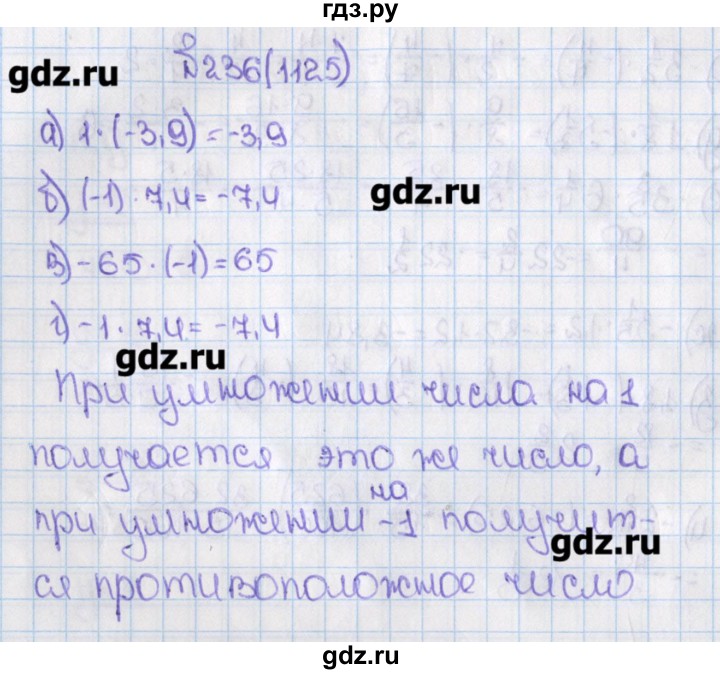 гдз.ру
№236(1125)
gdz.ru
а) 1·(-3,9)=-3,9
б) (-1)·7,4=-7,4
gdz.ru
в) -65·(-1)=65
г) -1·7,4=-7,4
gdz.ru
При умножении числа на 1
получается это же число, а
на
при умножении -1 получит-
gdz.ru
ся противоположное число
gdz.ru